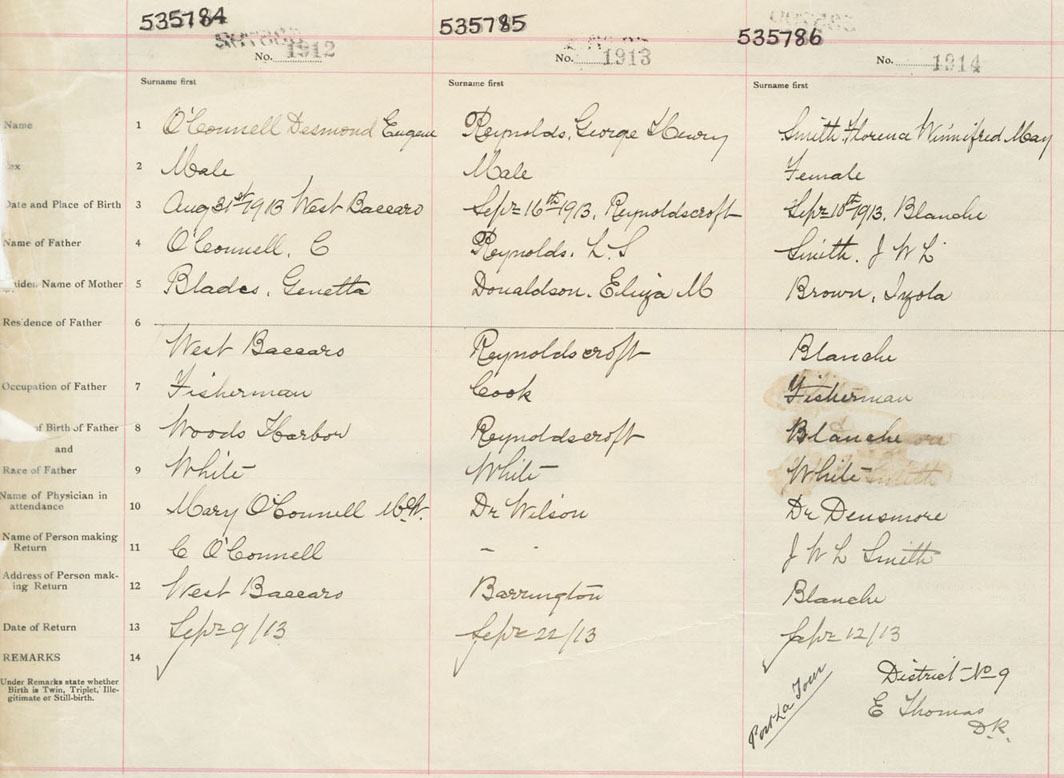 535784 535785 535786
No. 1912 No. 1913 No. 1914
Surname first Surname first Surname first
Name 1 O'Connell Desmond Eugene Reynolds, George Henry Smith, Florence Winnifred May
2 Male Male Female
Date and Place of Birth 3 Aug 31st 1913 West Baccaro Sept 16th 1913, Reynoldscroft Sept 10th 1913, Blanche
Name of Father 4 O'Connell, C Reynolds, L. S Smith. J W L
Maiden Name of Mother 5 Blades, Genetta Donaldson, Eliza M Brown, Izola
Residence of Father 6
West Baccaro Reynoldscroft Blanche
Occupation of Father 7 Fisherman Cook Fisherman
of Birth of Father 8 Woods Harbor Reynoldscroft Blanche
and
Race of Father 9 White White White
Name of Physician in
attendance 10 Mary O'Connell Dr Wilson Dr Densmore
Name of Person making
Return 11 C O'Connell - - J W L Smith
Address of Person mak-
ing Return 12 West Baccaro Barrington Blanche
Date of Return 13 Sept 9/13 Sept 22/13 Sept 12/13
REMARKS 14
Under Remarks state whether
Birth is Twin, Triplet, Ille-
gitimate or Still-birth.
Port La Tour
District No 9
E Thomas
D.R.